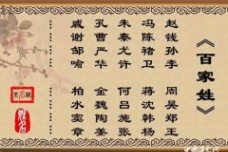 《百家姓》
赵钱孙李
周吴郑王
冯陈褚卫
蒋沈韩杨
朱秦尤许
何吕施张
孔曹严华
金魏陶姜
戚谢邹喻
柏水窦章